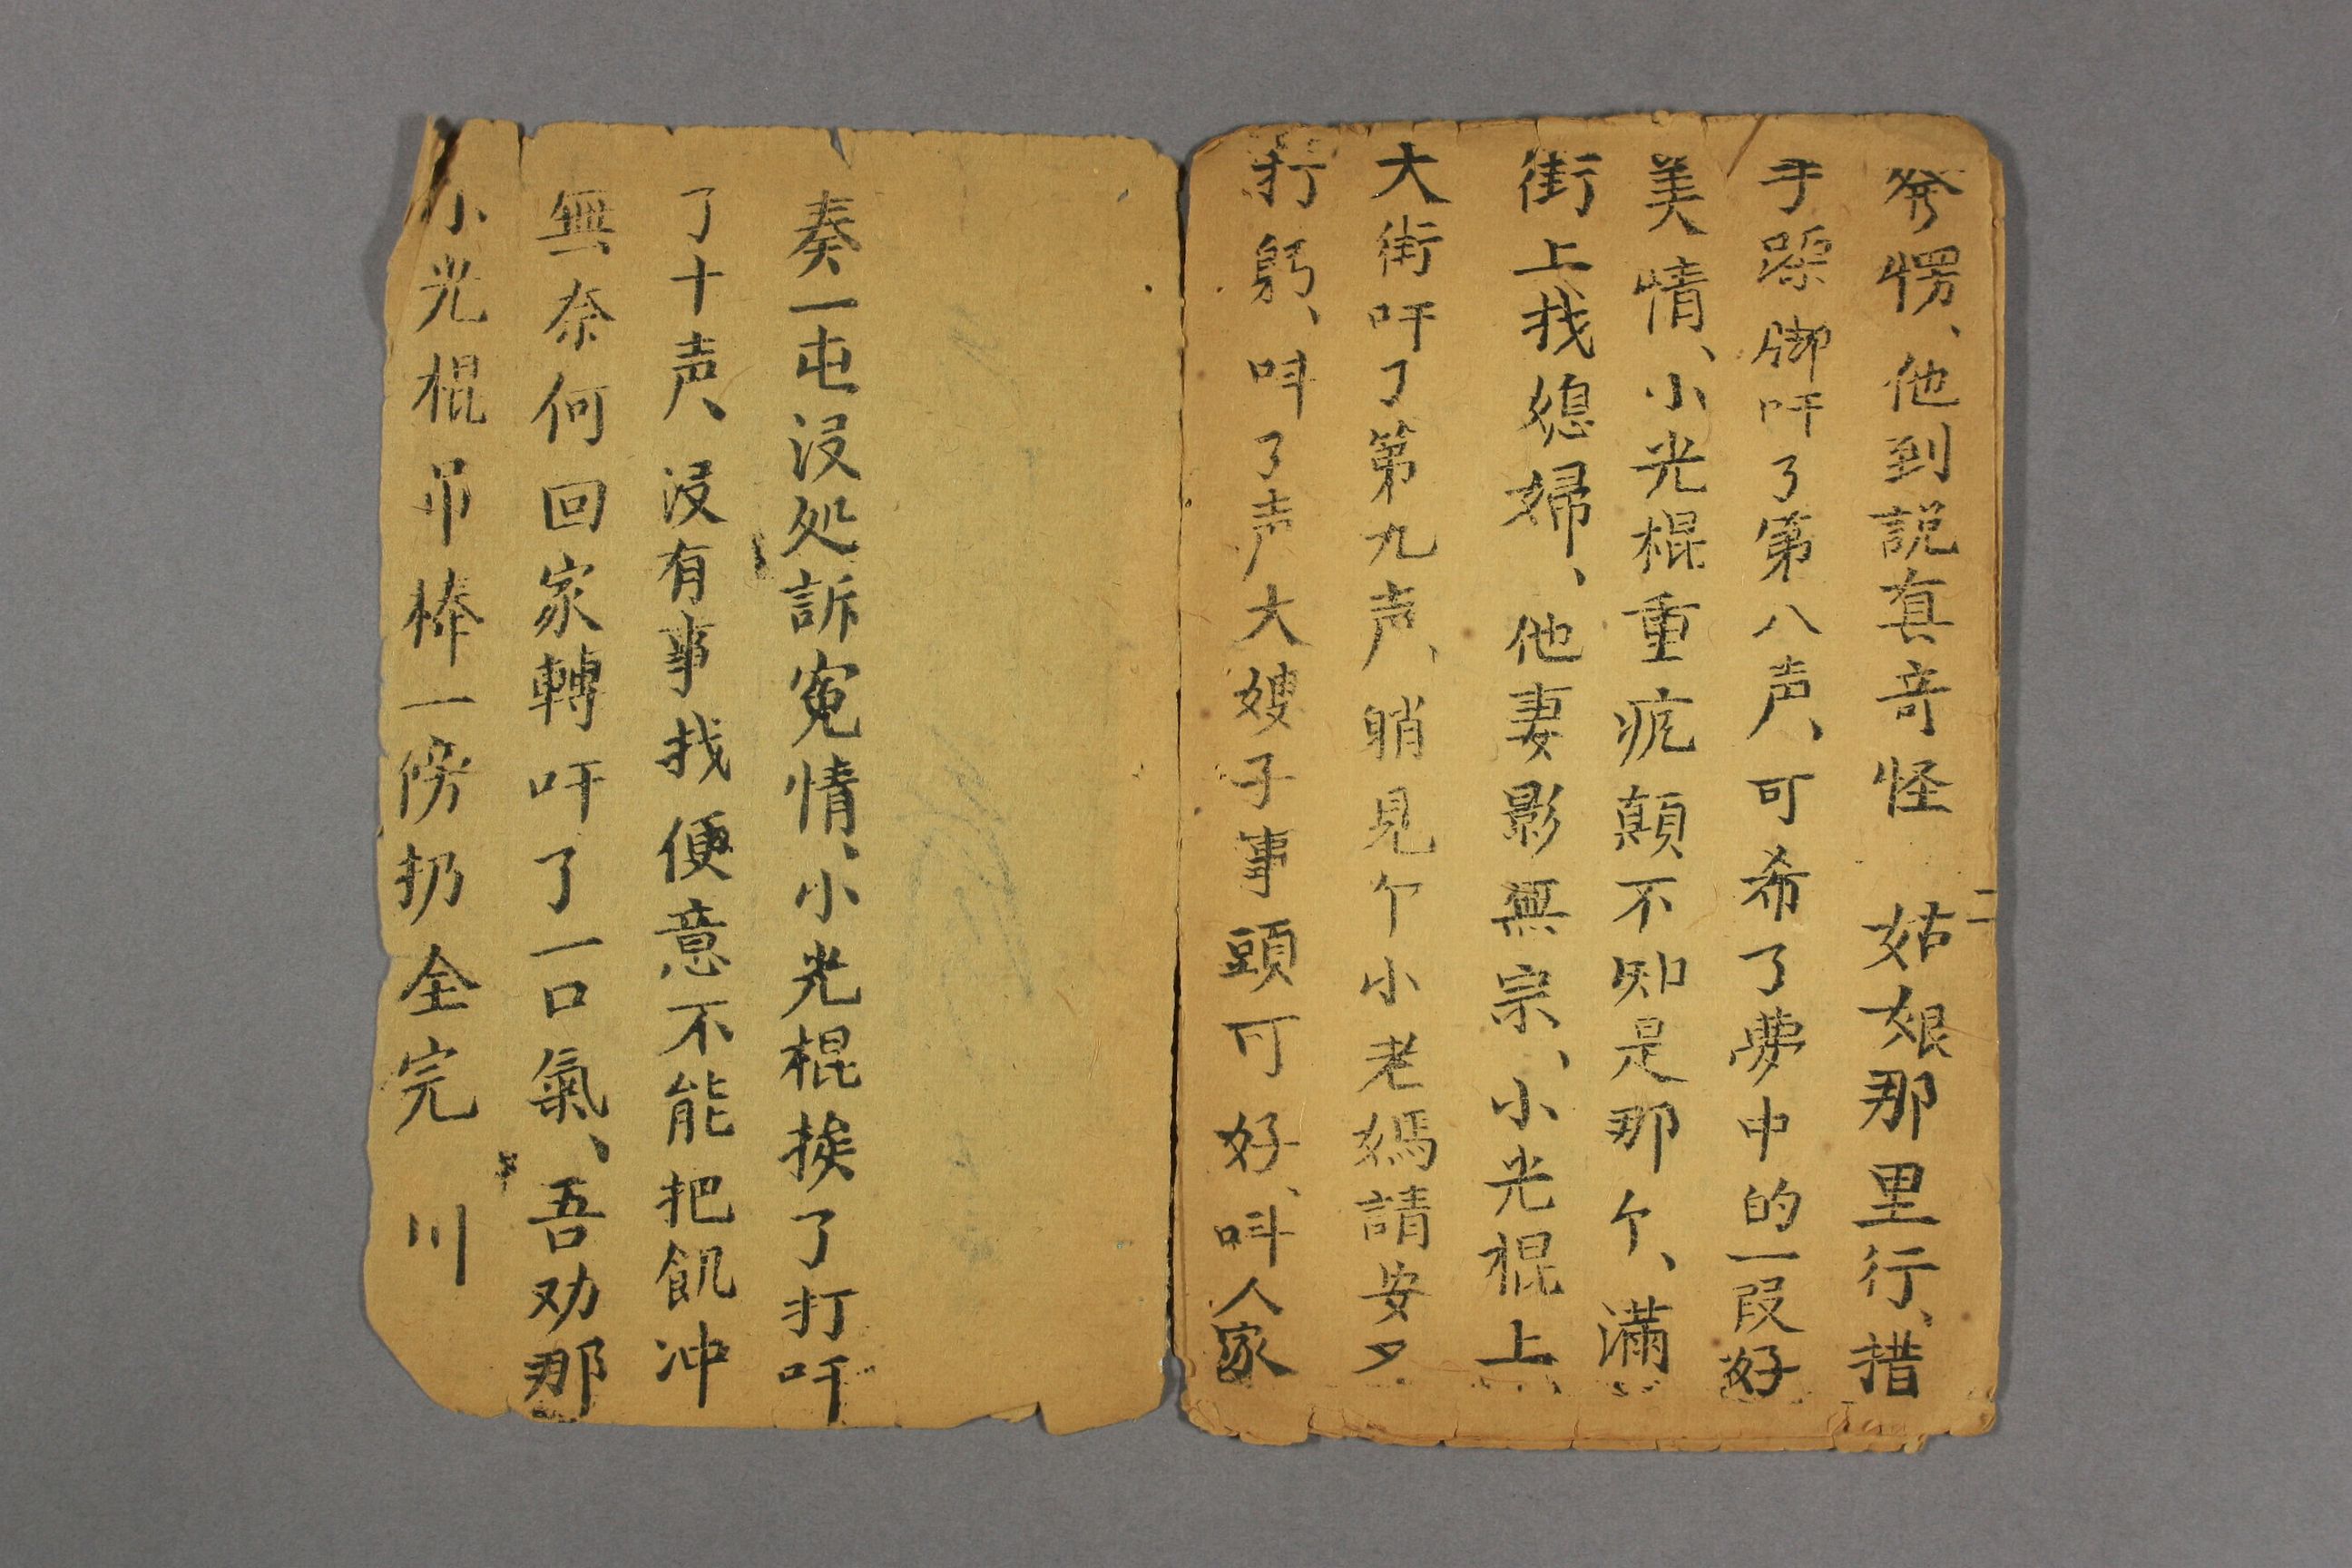 發愣、他到説真竒怪 姑娘那里行、措
二
手躁脚吀了第八声、可希了夢中的一叚好
美情、小光棍重疯顛不知是那亇、滿
街上找媳婦、他妻影無宗、小光棍上
大街吀了第九声、睄見亇小老媽請安又
打躬、呌了声大嫂子事頭可好、呌人家
奏一屯没処訴寃情、小光棍挨了打吀
了十声、没有事找便意不能把飢冲
無奈何回家轉吀了一口氣、吾劝那
小光棍吊棒一傍扔全完 川